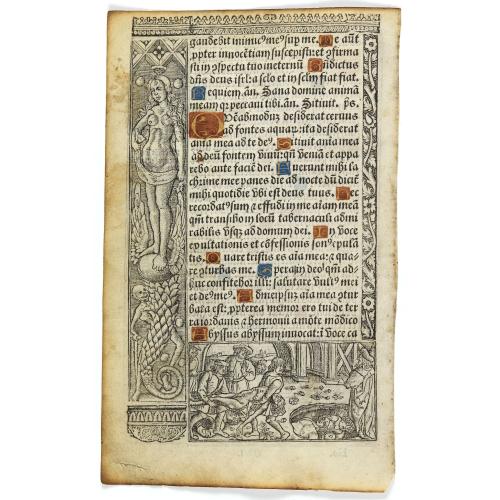 gaudebit inimicꝰ meꝰ sup me. Me aūt
ꝓpter innocētiam suscepisti: et ꝯfirma
sti in ꝯspectu tuo ineternū. Bn̄dictus
dn̄s deus isrl: a sclo et in sclm fiat fiat.
Requiem. an̄. Sana domine animā
meam qꝛ peccaui tibi. an̄. Sitiuit. ps.
Quēadmodū desiderat ceruus
ad fontes aquaꝝ: ita desiderat
anīa mea ad te deꝰ. Sitiuit anīa mea
ad deū fontem viuū: qn̄ veniā et appa
rebo ante faciē dei. Fuerunt mihi la
chrime mee panes die ac nocte dū dicit̄
mihi quotidie vbi est deus tuus. Hec
recordatꝰ sum et effudi in me aīam meā
qm̄ transibo in locū tabernaculi admi
rabilis vsqꝫ ad domum dei. In voce
exultationis et cōfessionis sonꝰ epulā
tis. Quare tristis es aīa mea: et qua
re ꝯturbas me. Spera in deo qm̄ ad
huc confitebor illi: salutare vult�ꝰ mei
et deꝰ meꝰ. Ad meipsuꝫ aīa mea ꝯtur
bata est: ꝓpterea memor ero tui de ter
ra iordanis et hermonii a mōte modico
Abyssus abyssum inuocat: ī voce ca